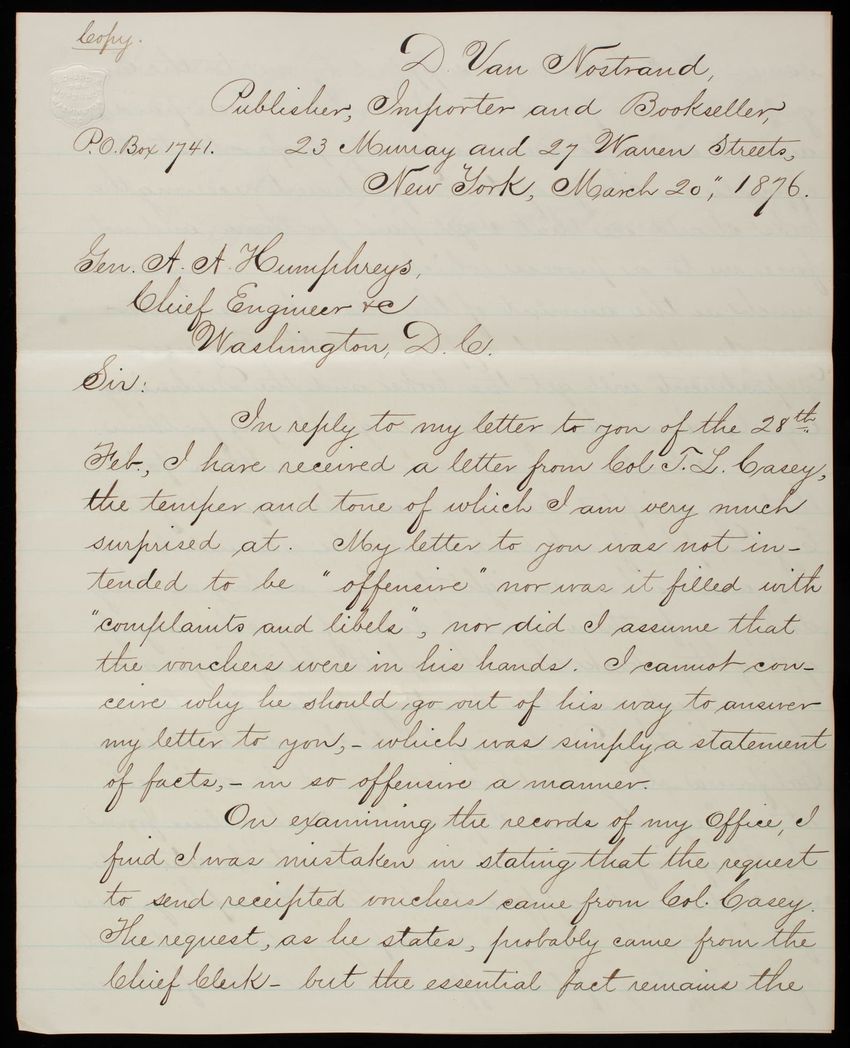 Copy.
D. Van Nostrand,
Publisher, Importer and Bookseller,
P.O. Box 1741. 23 Murray and 27 Warren Streets,
New York, March 20", 1876.
Gen. A. A. Humphreys,
Chief Engineer &c
Washington, D. C.
Sir:
In reply to my letter to you of the 28th
Feb., I have received a letter from Col T. L. Casey,
the temper and tone of which I am very much
surprised at. My letter to you was not in-
tended to be "offensive" nor was it filled with
"complaints and libels", nor did I assume that
the vouchers were in his hands. I cannot con-
ceive why he should go out of his way to answer
my letter to you, - which was simply a statement
of facts, - in so offensive a manner.
On examining the records of my Office, I
find I was mistaken in stating that the request
to send receipted vouchers came from Col. Casey.
The request, as he states, probably came from the
Chief Clerk - but the essential fact remains the